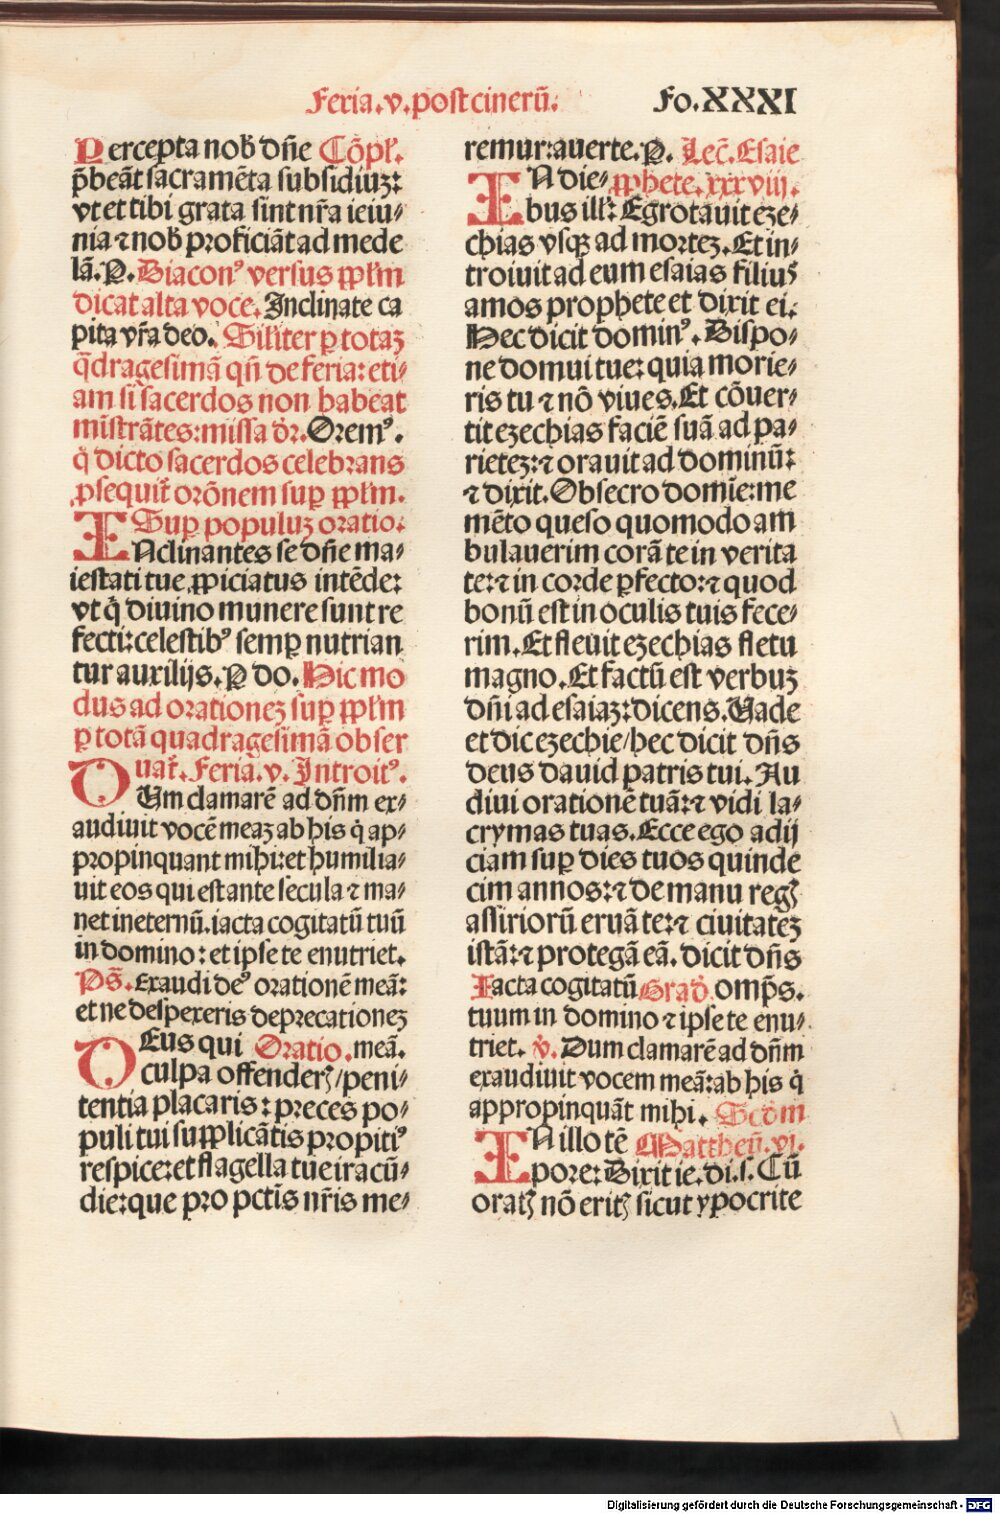 Feria.v.post cinerū. Fo.XXXI
Percepta nob̃ dn̄e Cōpl'.
p̄beāt sacramēta subsidiuz:
vt et tibi grata sint nr̄a ieiu⸗
nia ⁊ nob̃ proficiāt ad mede
lā.P.Diacon⁹ versus ppl'm
dicat alta voce.Inclinate ca
pita vr̄a deo. Sil'iter ꝑ totaz
q̄dragesimā qn̄ de feria:eti⸗
am si sacerdos non habeat
mīstrātes:missa dr̄.Orem⁹.
q̄ dicto sacerdos celebrans
ꝓsequit̄ orōnem suꝑ ppl'm.
Suꝑ populuz oratio.
INclinantes se dn̄e ma⸗
iestati tue ꝓpiciatus intēde:
vt q̄ diuino munere sunt re
fecti:celestib⁹ semꝑ nutrian
tur auxilijs.P do.Hic mo
dus ad orationez suꝑ ppl'm
ꝑ totā quadragesimā obser
uat̄.Feria.v.Introit⁹.
DUm clamarē ad dn̄m ex⸗
audiuit vocē meaz ab his q̄ ap⸗
propinquant mihi:et humilia⸗
uit eos qui est ante secula ⁊ ma⸗
net ineternū.iacta cogitatū tuū
in domino:et ipse te enutriet.
Ps̄.Exaudi de⁹ orationē meā:
et ne despexeris deprecationez
DEus qui Oratio.meā.
culpa offenderꝭ/peni⸗
tentia placaris:preces po⸗
puli tui supplicātis propiti⁹
respice:et flagella tue iracū⸗
die:que pro pctīs nr̄is me⸗
remur:auerte.P. Lec̄.Esaie
IN die⸗ ꝓphete.xxxviij.
bus ill':Egrotauit eze⸗
chias vsqꝫ ad mortez.Et in⸗
troiuit ad eum esaias filius
amos prophete et dixit ei:
Hec dicit domin⁹.Dispo⸗
ne domui tue:quia morie⸗
ris tu ⁊ nō viues.Et cōuer⸗
tit ezechias faciē suā ad pa⸗
rietez:⁊ orauit ad dominū:
⁊ dixit.Obsecro domīe:me
mēto queso quomodo am
bulauerim corā te in verita
te:⁊ in corde ꝑfecto:⁊ quod
bonū est in oculis tuis fece⸗
rim.Et fleuit ezechias fletu
magno.Et factū est verbuz
dn̄i ad esaiaz:dicens.Uade
et dic ezechie/hec dicit dn̄s
deus dauid patris tui.Au
diui orationē tuā:⁊ vidi la⸗
crymas tuas.Ecce ego adij
ciam suꝑ dies tuos quinde
cim annos:⁊ de manu regꝭ
assiriorū eruā te:⁊ ciuitatez
istā:⁊ protegā eā.dicit dn̄s
Iacta cogitatū Grad̄.omps̄.
tuum in domino ⁊ ipse te enu⸗
triet. v̄.Dum clamarē ad dn̄m
exaudiuit vocem meā:ab his q̄
appropinquāt mihi. Scd̄m
IN illo tē Mattheū.vi.
pore:Dixit ie.di.s.Cū
oratꝭ nō eritꝭ sicut ypocrite
Digitalisierung gefördert durch die Deutsche Forschungsgemeinschaft - DFG